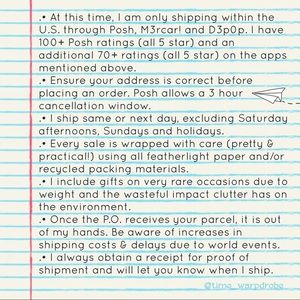 .• At this time, I am only shipping within the
U.S. through Posh, M3rcar! and D3p0p. I have
100+ Posh ratings (all 5 star) and an
additional 70+ ratings (all 5 star) on the apps
mentioned above.
.• Ensure your address is correct before
placing an order. Posh allows a 3 hour
cancellation window.
.• I ship same or next day, excluding Saturday
afternoons, Sundays and holidays.
.• Every sale is wrapped with care (pretty &
practical!) using all featherlight paper and/or
recycled packing materials.
.• I include gifts on very rare occasions due to
weight and the wasteful impact clutter has on
the environment.
.• Once the P.O. receives your parcel, it is out
of my hands. Be aware of increases in
shipping costs & delays due to world events.
.• I always obtain a receipt for proof of
shipment and will let you know when I ship.
@time_warpdrobe